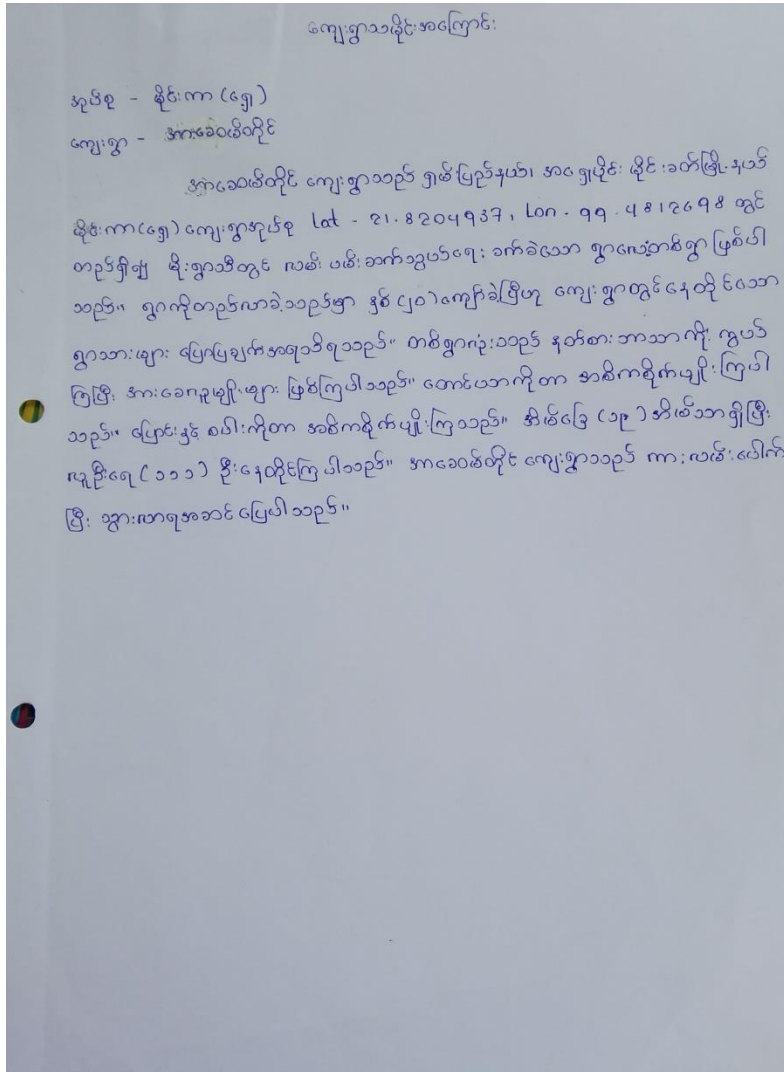 ကျေးရွာသမိုင်းအကြောင်း
အုပ်စု - မိုင်းကာ (ရှေ့)
ကျေးရွာ - အားခေဝမ်တိုင်
အာခေဝမ်တိုင် ကျေးရွာသည် ရှမ်းပြည်နယ်၊ အရှေ့ပိုင်း မိုင်းခတ်မြို့နယ်
မိုင်းကာ(ရှေ့) ကျေးရွာအုပ်စု Lat - 21.8204937, Lon - 99.4812698 တွင်
တည်ရှိ၍ မိုးရွာသီတွင် လမ်းပမ်းဆက်သွယ်ရေး ခက်ခဲသော ရွာလေးတစ်ရွာ ဖြစ်ပါ
သည်။ ရွာကိုတည်လာခဲ့သည်မှာ နှစ်(၂၀)ကျော်ခဲ့ပြီဟု ကျေးရွာတွင်နေထိုင်သော
ရွာသားများ ပြောပြချက်အရသိရသည်။ တစ်ရွာလုံးသည် နတ်စားဘာသာကိုး ကွယ်
ကြပြီး အားခေလူမျိုးများ ဖြစ်ကြပါသည်။ တောင်ယာကိုသာ အဓိကစိုက်ပျိုးကြပါ
သည်။ ပြောင်းနှင့် စပါးကိုသာ အဓိကစိုက်ပျိုးကြသည်။ အိမ်ခြေ (၁၉) အိမ်သာရှိပြီး
လူဦးရေ (၁၁၁) ဦးနေထိုင်ကြပါသည်။ အာခေဝမ်တိုင် ကျေးရွာသည် ကားလမ်းပေါက်
ပြီး သွားလာရအဆင်ပြေပါသည်။